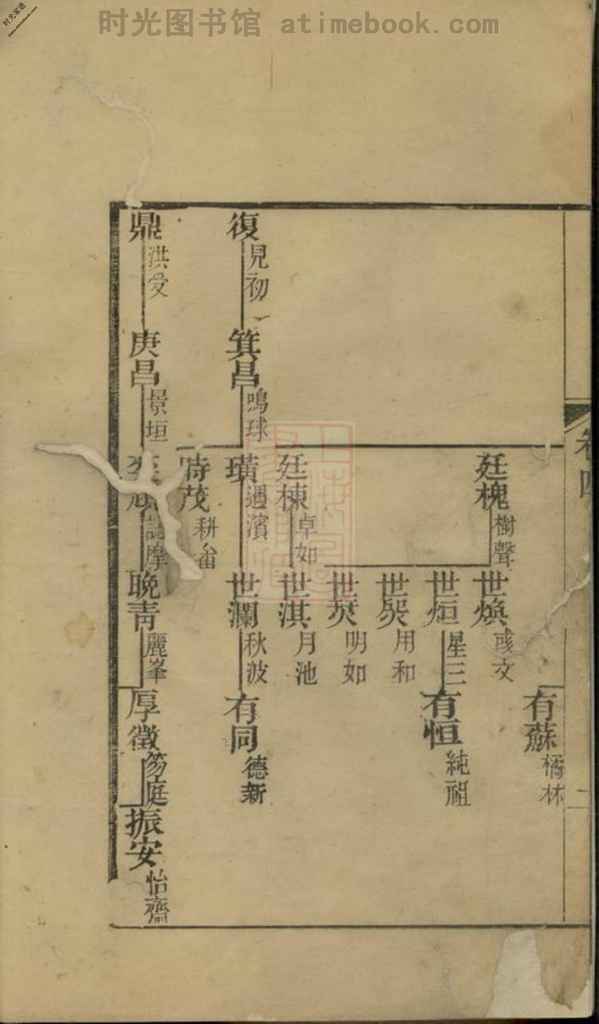 时光图书馆 atimebook.com
时光家谱
卷四
二
有蘇 橘林
廷槐 樹聲
世煥 彧文
世烜 星三
有恒 純祖
用和
明如
廷棟 卓如
世淇 月池
復 見初
箕昌 鳴球
璜 遇濱
世瀾 秋波
有同 德新
時茂 耕畬
鼎 洪文
庚昌 景垣
晚青 麗峯
厚徵 笏庭
振安 怡齋